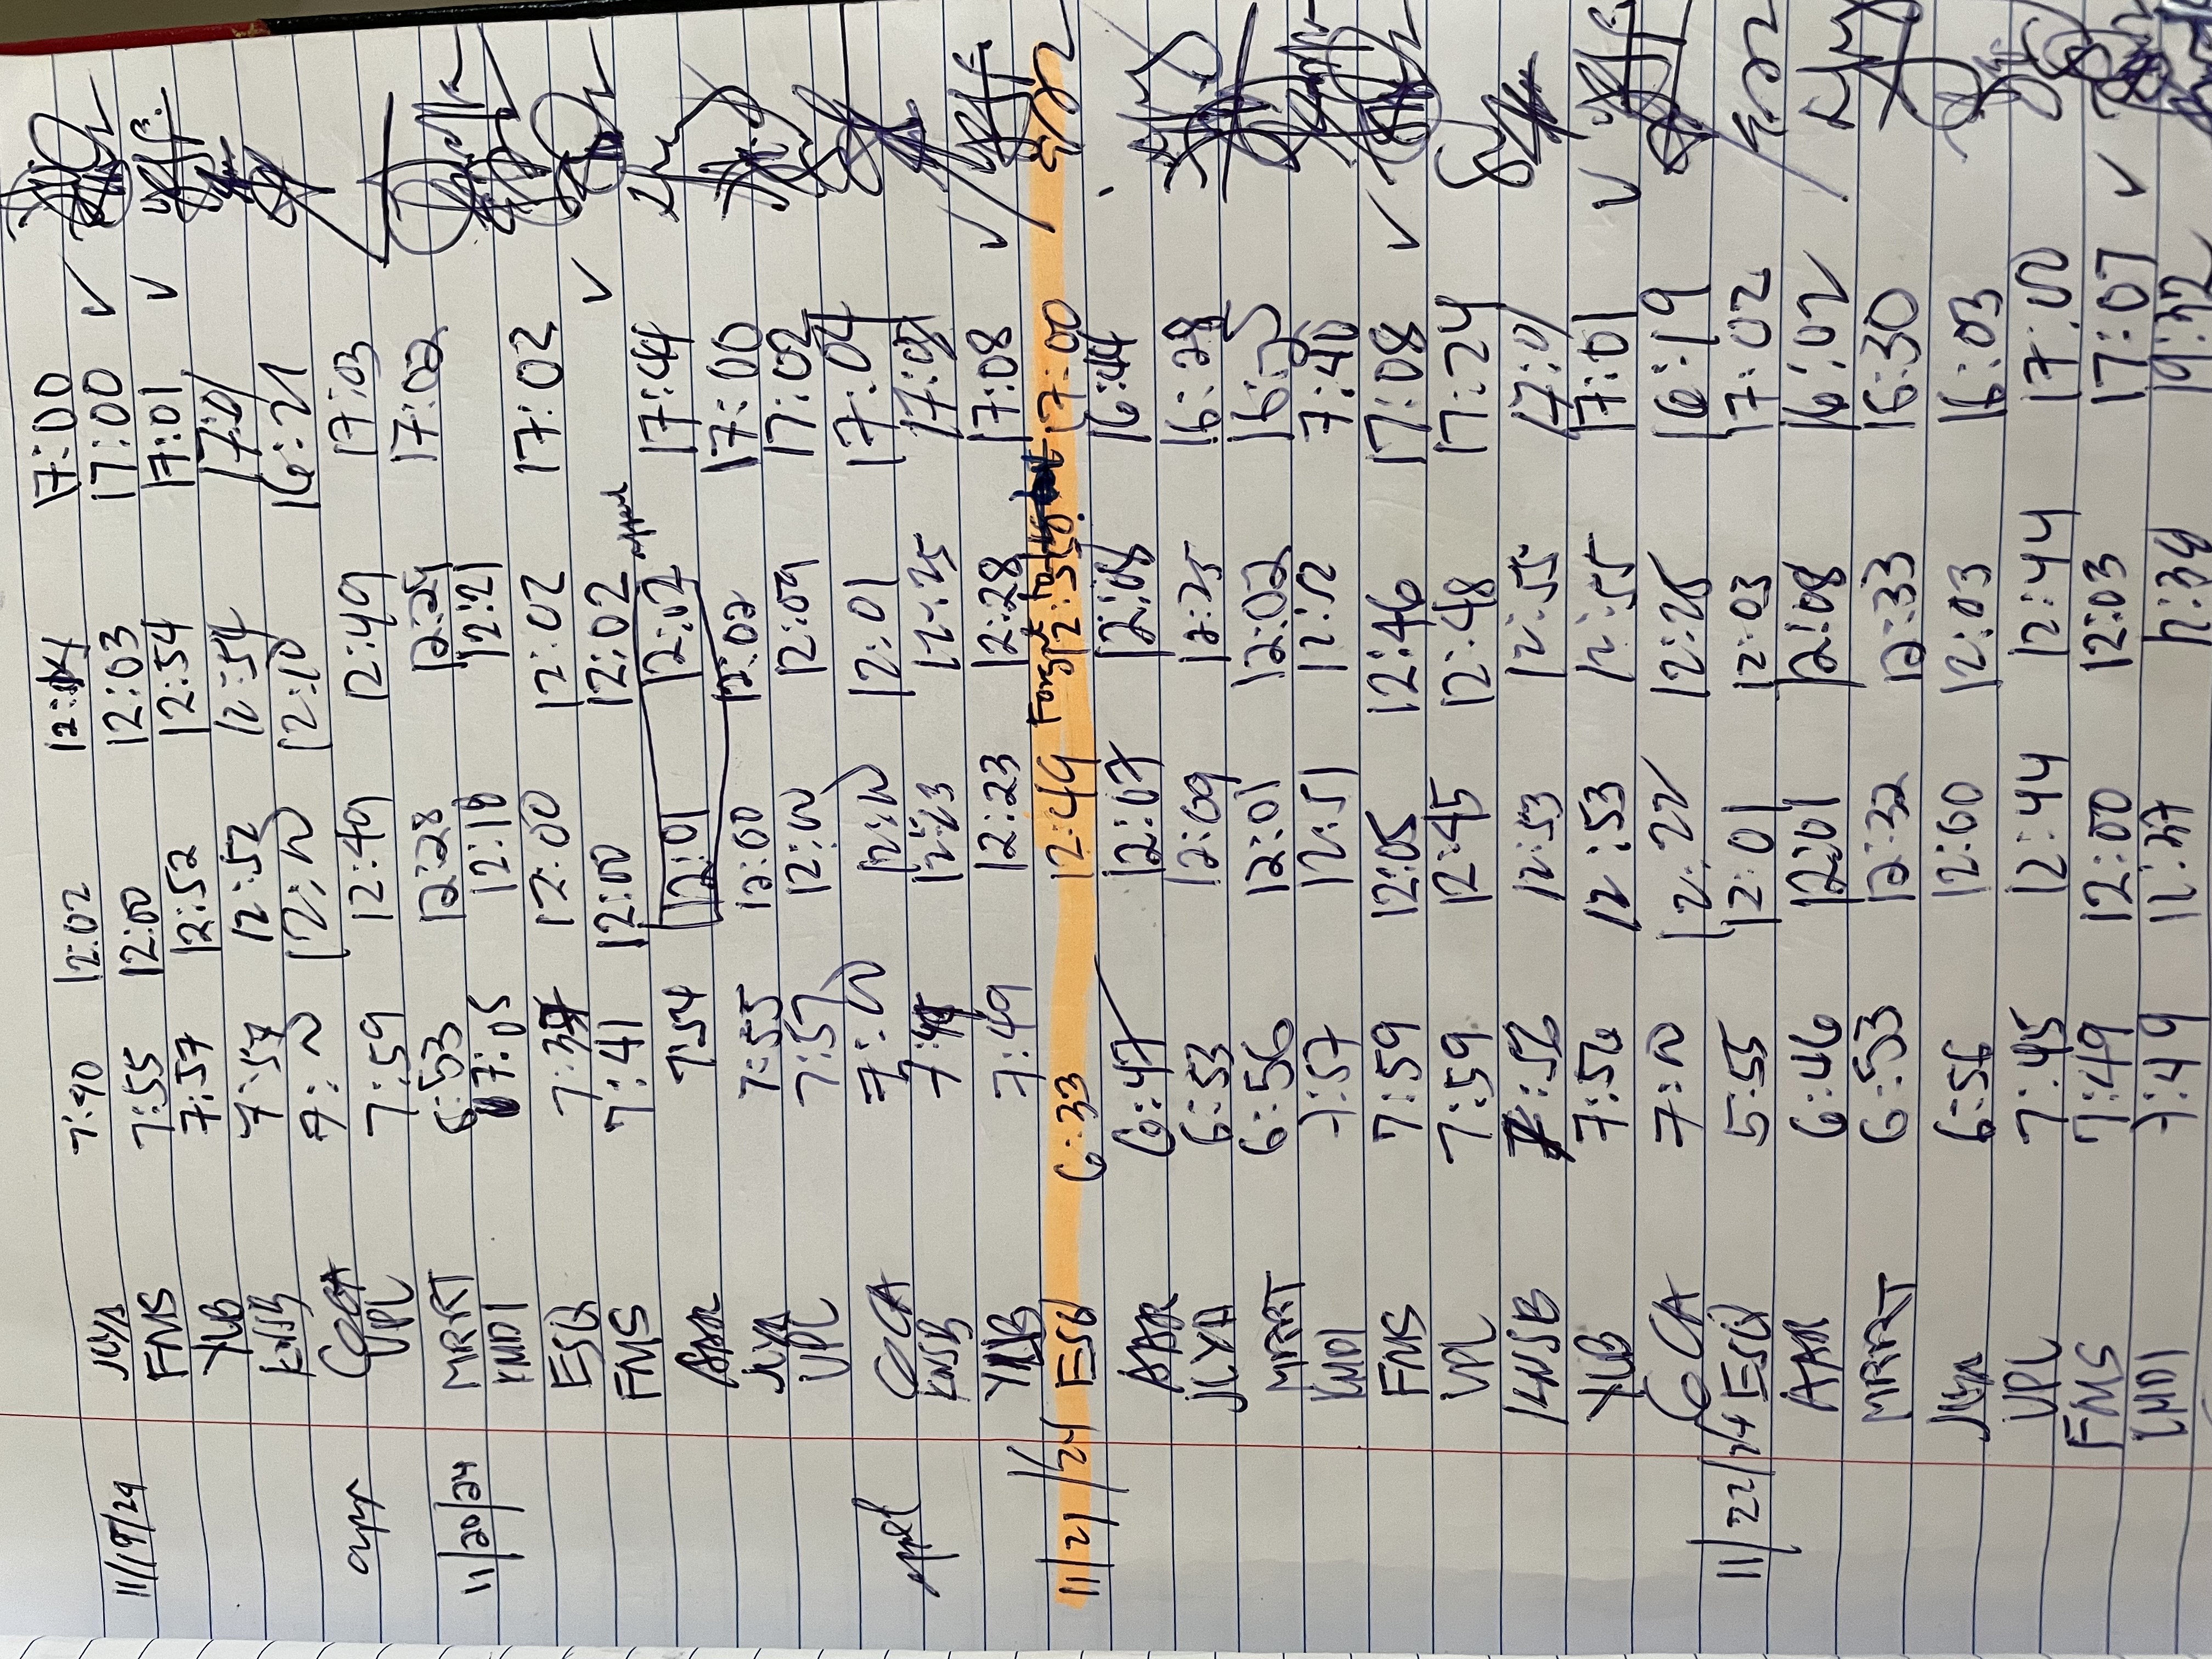 11/19/24 JLYA 7:40 12:02 12:04 17:00
FMS 7:55 12:00 12:03 17:00 ✓
YLB 7:57 12:52 12:54 17:01 ✓
KWSB 7:57 12:52 12:54 17:01
CCCA 12:10 16:21
VPL 7:59 12:49 12:49 17:03
11/20/24 MRRT 6:53 12:28 12:29 17:02
KMD1 7:05 12:18 12:21
ESQ 7:37 12:00 12:02 17:02
FMS 7:41 12:00 12:02 ✓
AAR 7:54 12:01 12:02 17:44
JLYA 7:55 12:00 12:02 17:00
VPL 7:57 12:00 12:09 17:02
CCA 12:01 17:04
KWSB 7:49 12:23 12:25 17:08
YLB 7:49 12:23 12:28 17:08 ✓
11/21/24 ESQ 6:33 12:49 Forgot to 12:51 17:00
AAR 6:47 12:07 12:08 16:44
JLYA 6:53 12:09 12:25 16:28
MRRT 6:56 12:01 12:02 16:25
KMD1 7:57 12:51 12:52 7:40
FMS 7:59 12:05 12:46 17:08 ✓
VPL 7:59 12:45 12:48 17:24
KWSB 7:56 12:53 12:55 17:01
YLB 7:56 12:53 12:55 17:01 ✓
CCA 12:22 12:25 16:19
11/22/24 ESQ 5:55 12:01 12:03 17:02
AAR 6:46 12:01 12:08 16:02
MRRT 6:53 12:32 12:33 16:30
JLYA 6:56 12:00 12:03 16:03
VPL 7:45 12:44 12:44 17:00
FMS 7:49 12:00 12:03 17:07 ✓
KMD1 7:49 12:37 12:39 19:32